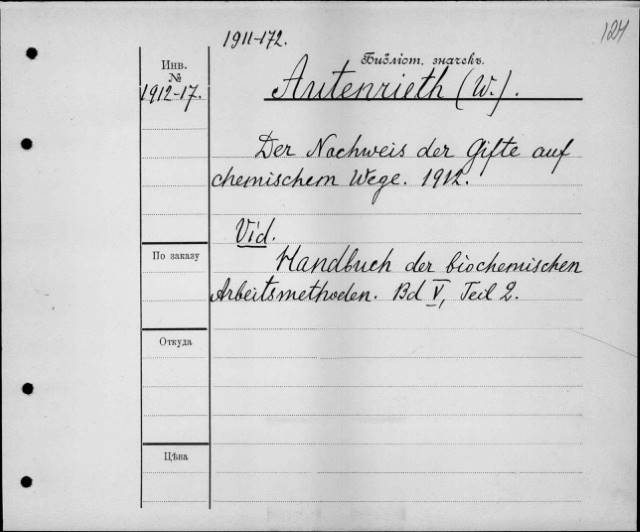 124
1911-172.
Библіот. значекъ.
Инв.
№
1912-17.
Autenrieth (W.).
Der Nachweis der Gifte auf
chemischem Wege. 1912.
Vid.
Handbuch der biochemischen
Arbeitsmethoden. Bd V, Teil 2.
По заказу
Откуда
Цѣна